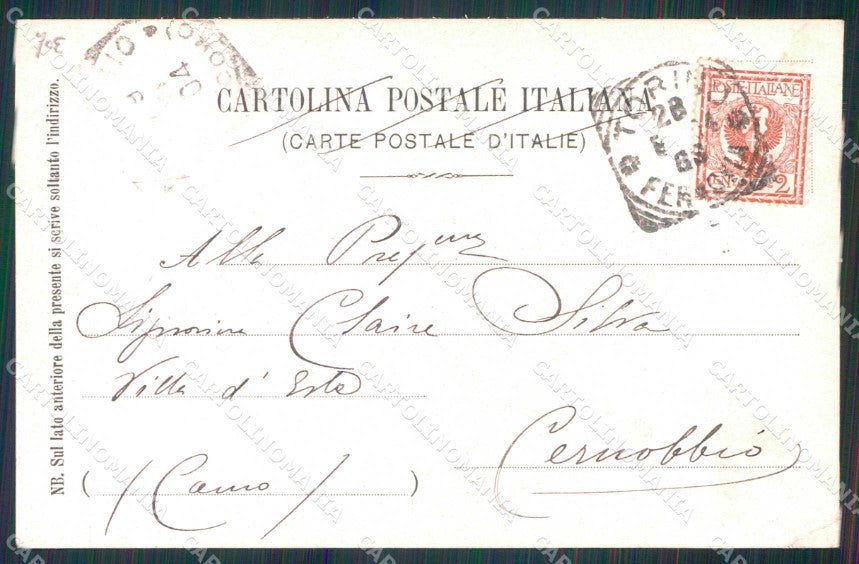 CARTOLINA POSTALE ITALIANA
(CARTE POSTALE D'ITALIE)
TORINO
28
FERROVIA
POSTE ITALIANE
2
(COMO)
04
Alla Preg.ma
Signorina Claire Silva
Villa d'Este
Cernobbio
(Como)
NB. Sul lato anteriore della presente si scrive soltanto l'indirizzo.
CARTOLINOMANIA